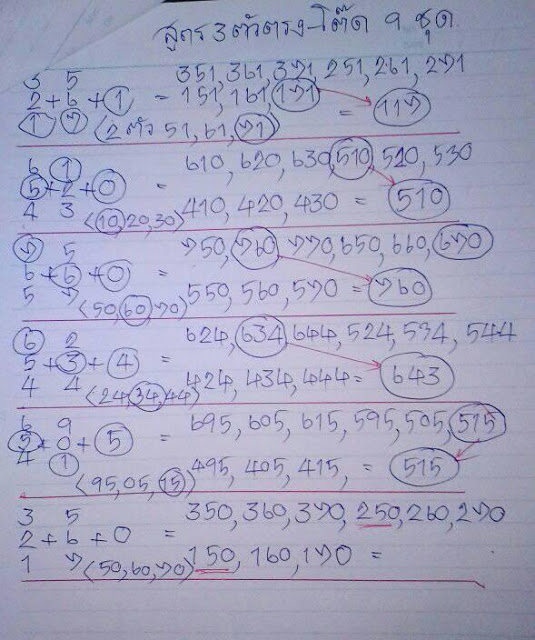 สูตร 3 ตัวตรง-โต๊ด 9 ชุด
3 5 351, 361, 371, 251, 261, 271
2+6+1 = 151, 161, 171 = 117
1 7 (2 ตัว 51, 61, 71)
6 1 610, 620, 630, 510, 520, 530
5+2+0 =
4 3 (10, 20, 30) 410, 420, 430 = 510
7 5 750, 760, 770, 650, 660, 670
6+6+0 =
5 7 (50, 60, 70) 550, 560, 570 = 760
6 2 624, 634, 644, 524, 534, 544
5+3+4 =
4 4 (24, 34, 44) 424, 434, 444 = 643
6 9 695, 605, 615, 595, 505, 515
5+0+5 =
4 1 (95, 05, 15) 495, 405, 415, = 515
3 5 350, 360, 370, 250, 260, 270
2+6+0 =
1 7 (50, 60, 70) 150, 160, 170 =